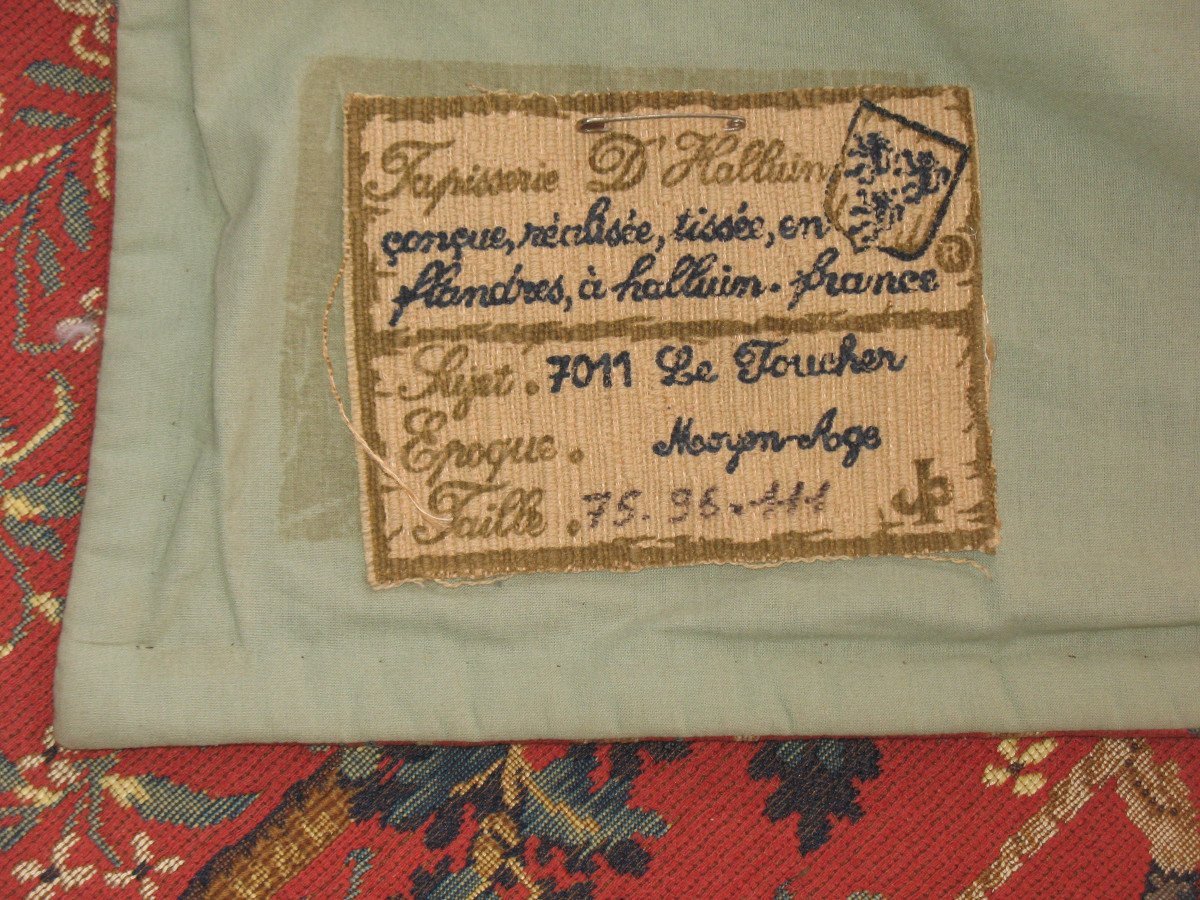 Tapisserie D'Halluin
conçue, réalisée, tissée, en
flandres, à halluin. france ®
Sujet. 7011 Le Toucher
Epoque. Moyen-Age
Taille. 75. 96. 111
JP